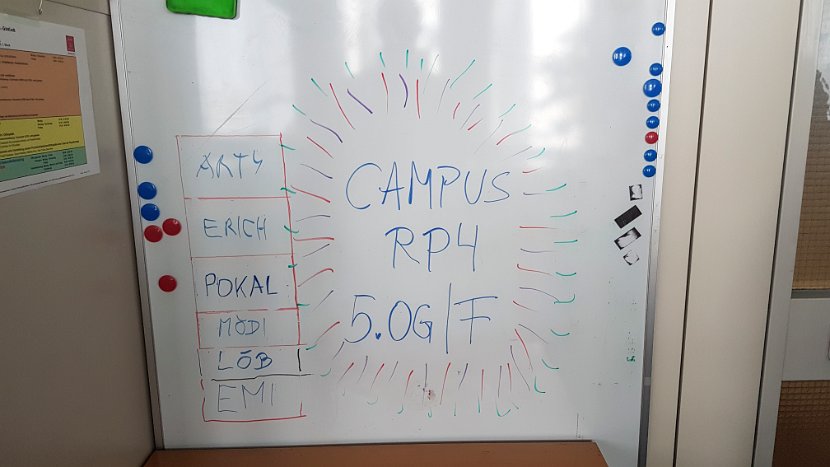 ARTY
ERICH
POKAL
MÖDI
LÖB
EMI
CAMPUS
RP4
5.OG/F